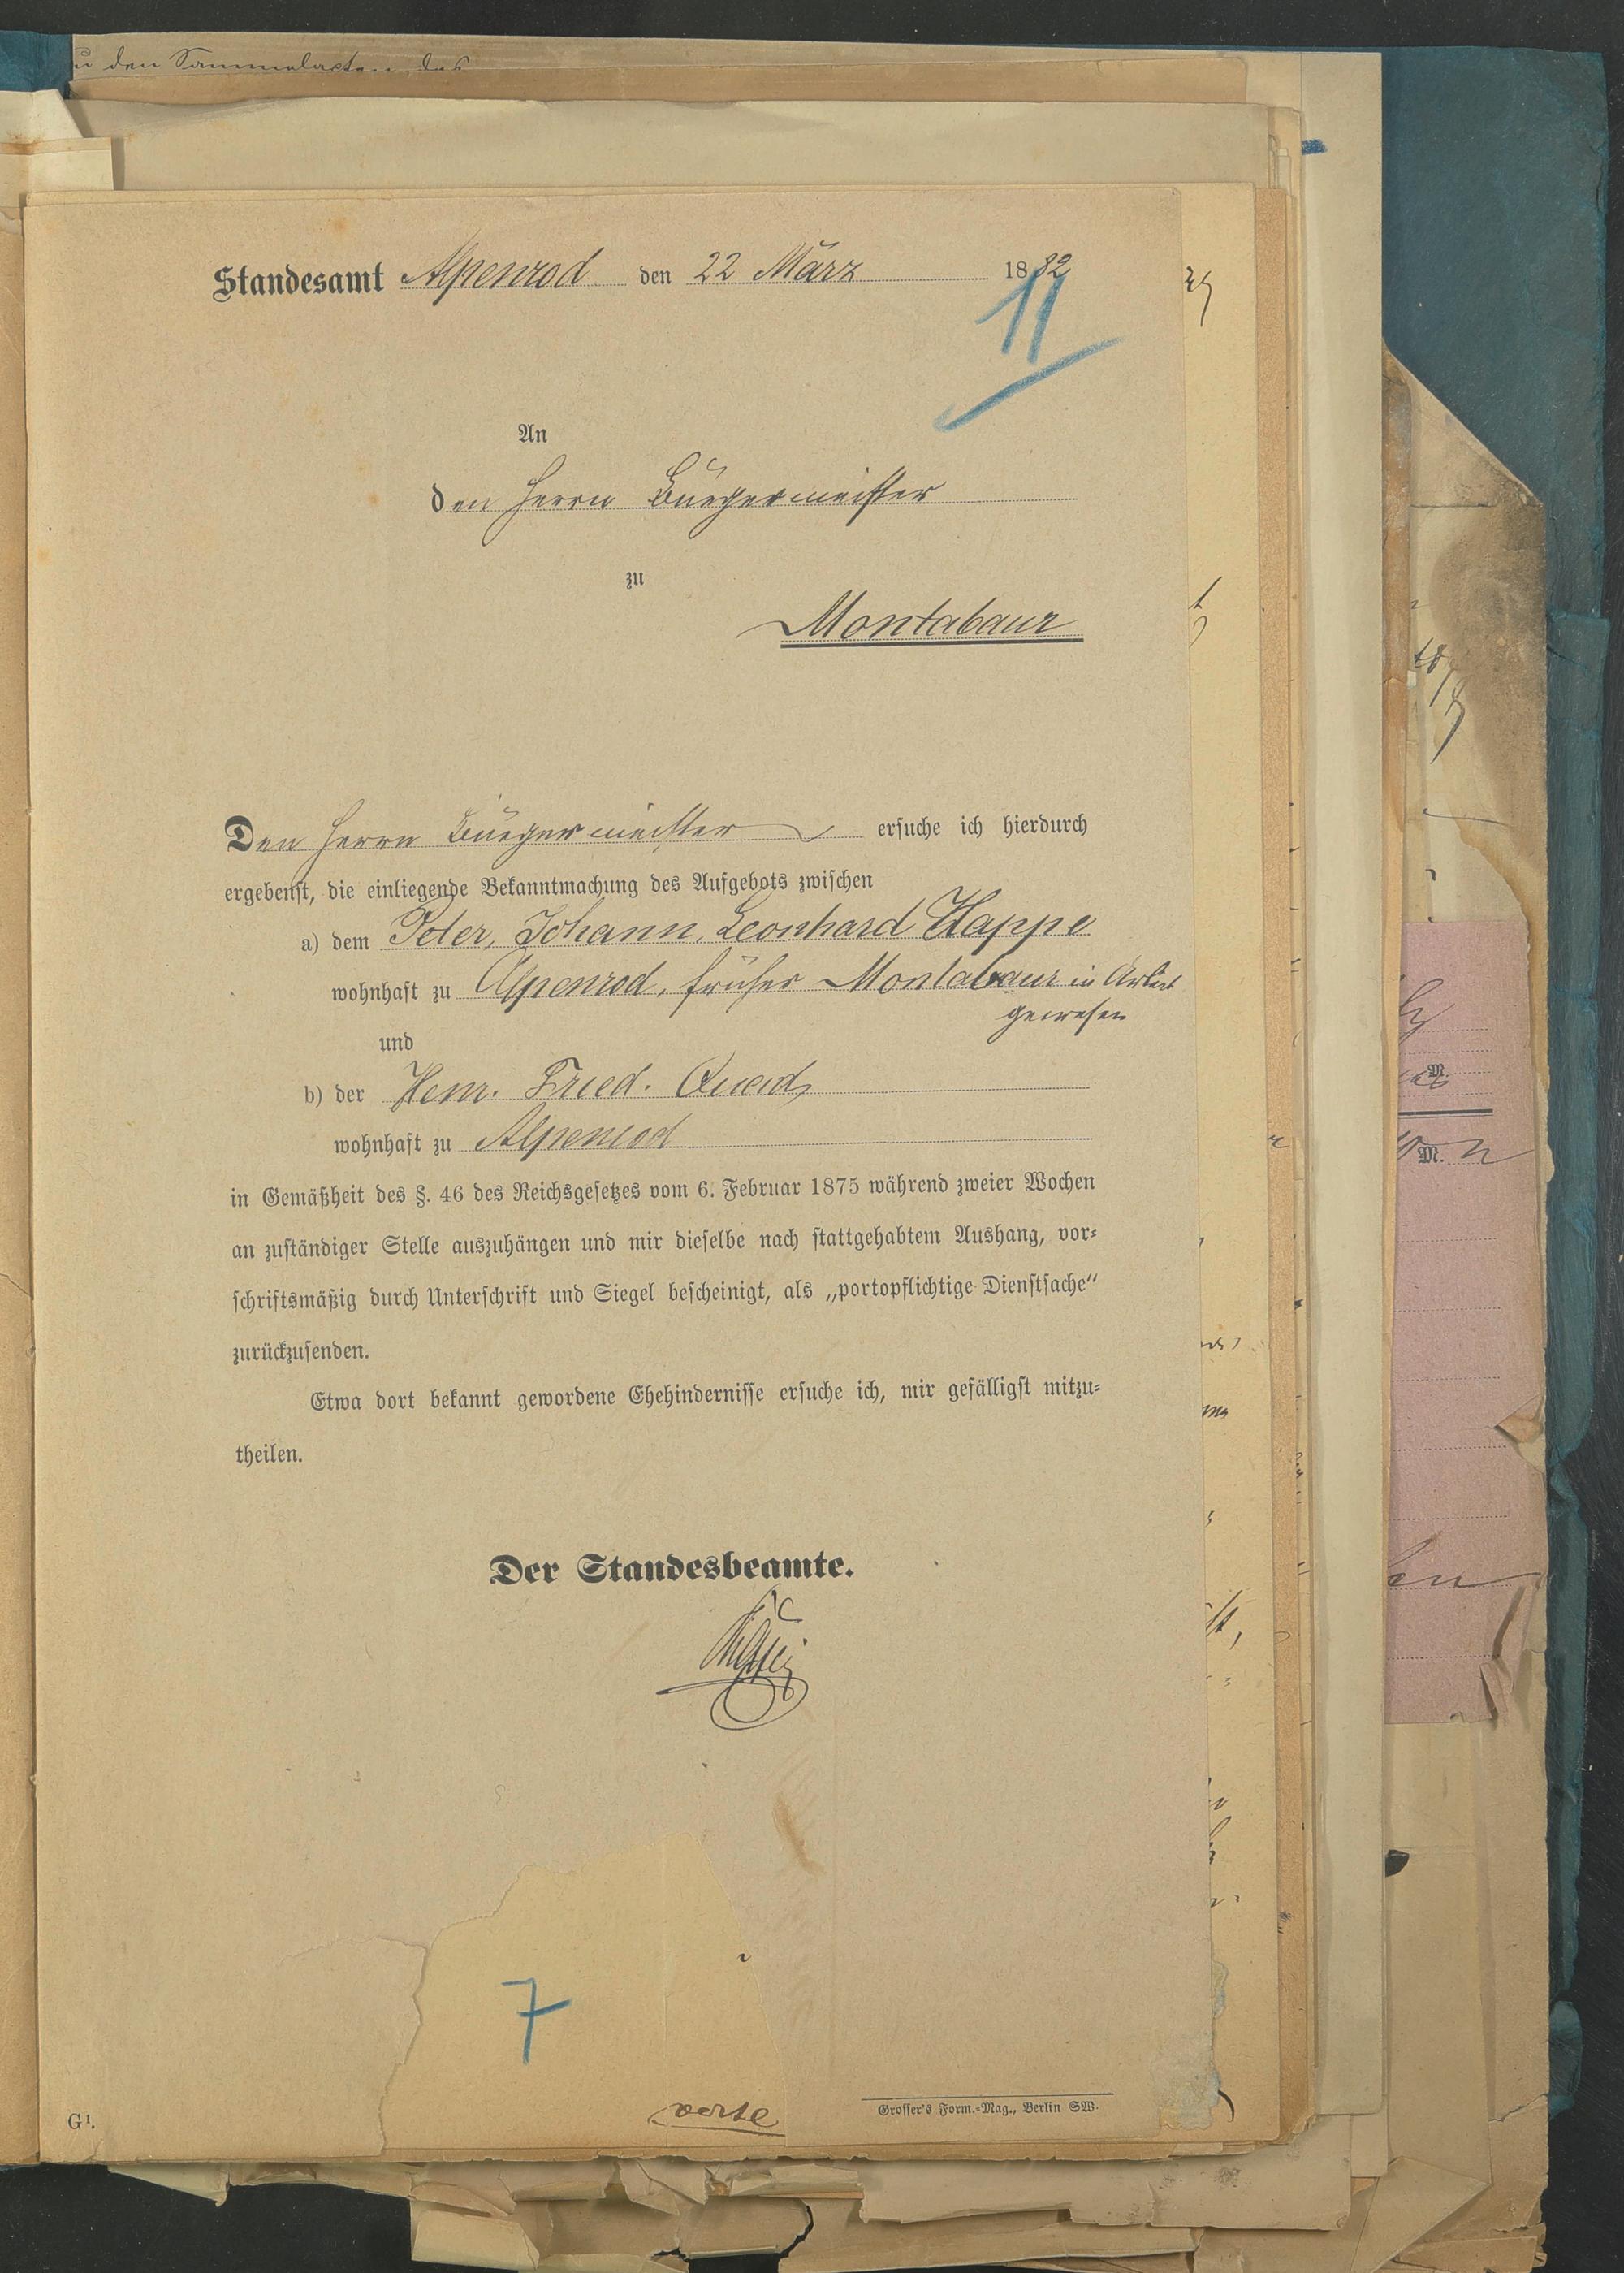 den Sammelacten des
Standesamt Alpenrod den 22 März 1882
11
An
den Herrn Bürgermeister
zu
Montabaur
Den Herrn Bürgermeister ersuche ich hierdurch
ergebenst, die einliegende Bekanntmachung des Aufgebots zwischen
a) dem Peter, Johann, Leonhard Happe
wohnhaft zu Alpenrod, früher Montabaur in Arbeit
gewesen
und
b) der Henr. Fried.
wohnhaft zu Alpenrod
in Gemäßheit des §. 46 des Reichsgesetzes vom 6. Februar 1875 während zweier Wochen
an zuständiger Stelle auszuhängen und mir dieselbe nach stattgehabtem Aushang, vor-
schriftsmäßig durch Unterschrift und Siegel bescheinigt, als „portopflichtige Dienstsache"
zurückzusenden.
Etwa dort bekannt gewordene Ehehindernisse ersuche ich, mir gefälligst mitzu-
theilen.
Der Standesbeamte.
7
verte
G¹.
Grosser's Form.-Mag., Berlin SW.
M.
M.